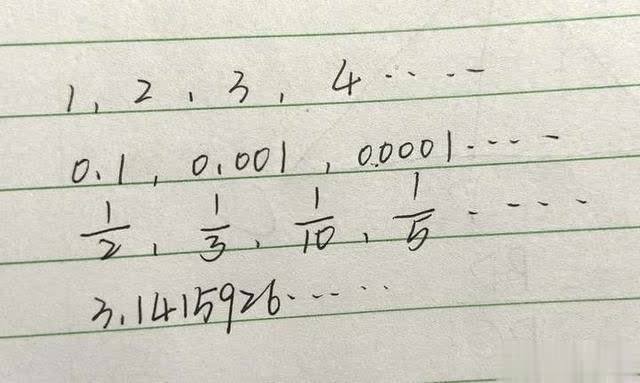 1, 2, 3, 4·····
0.1, 0.001, 0.0001·····
1/2, 1/3, 1/10, 1/5·····
3.1415926······